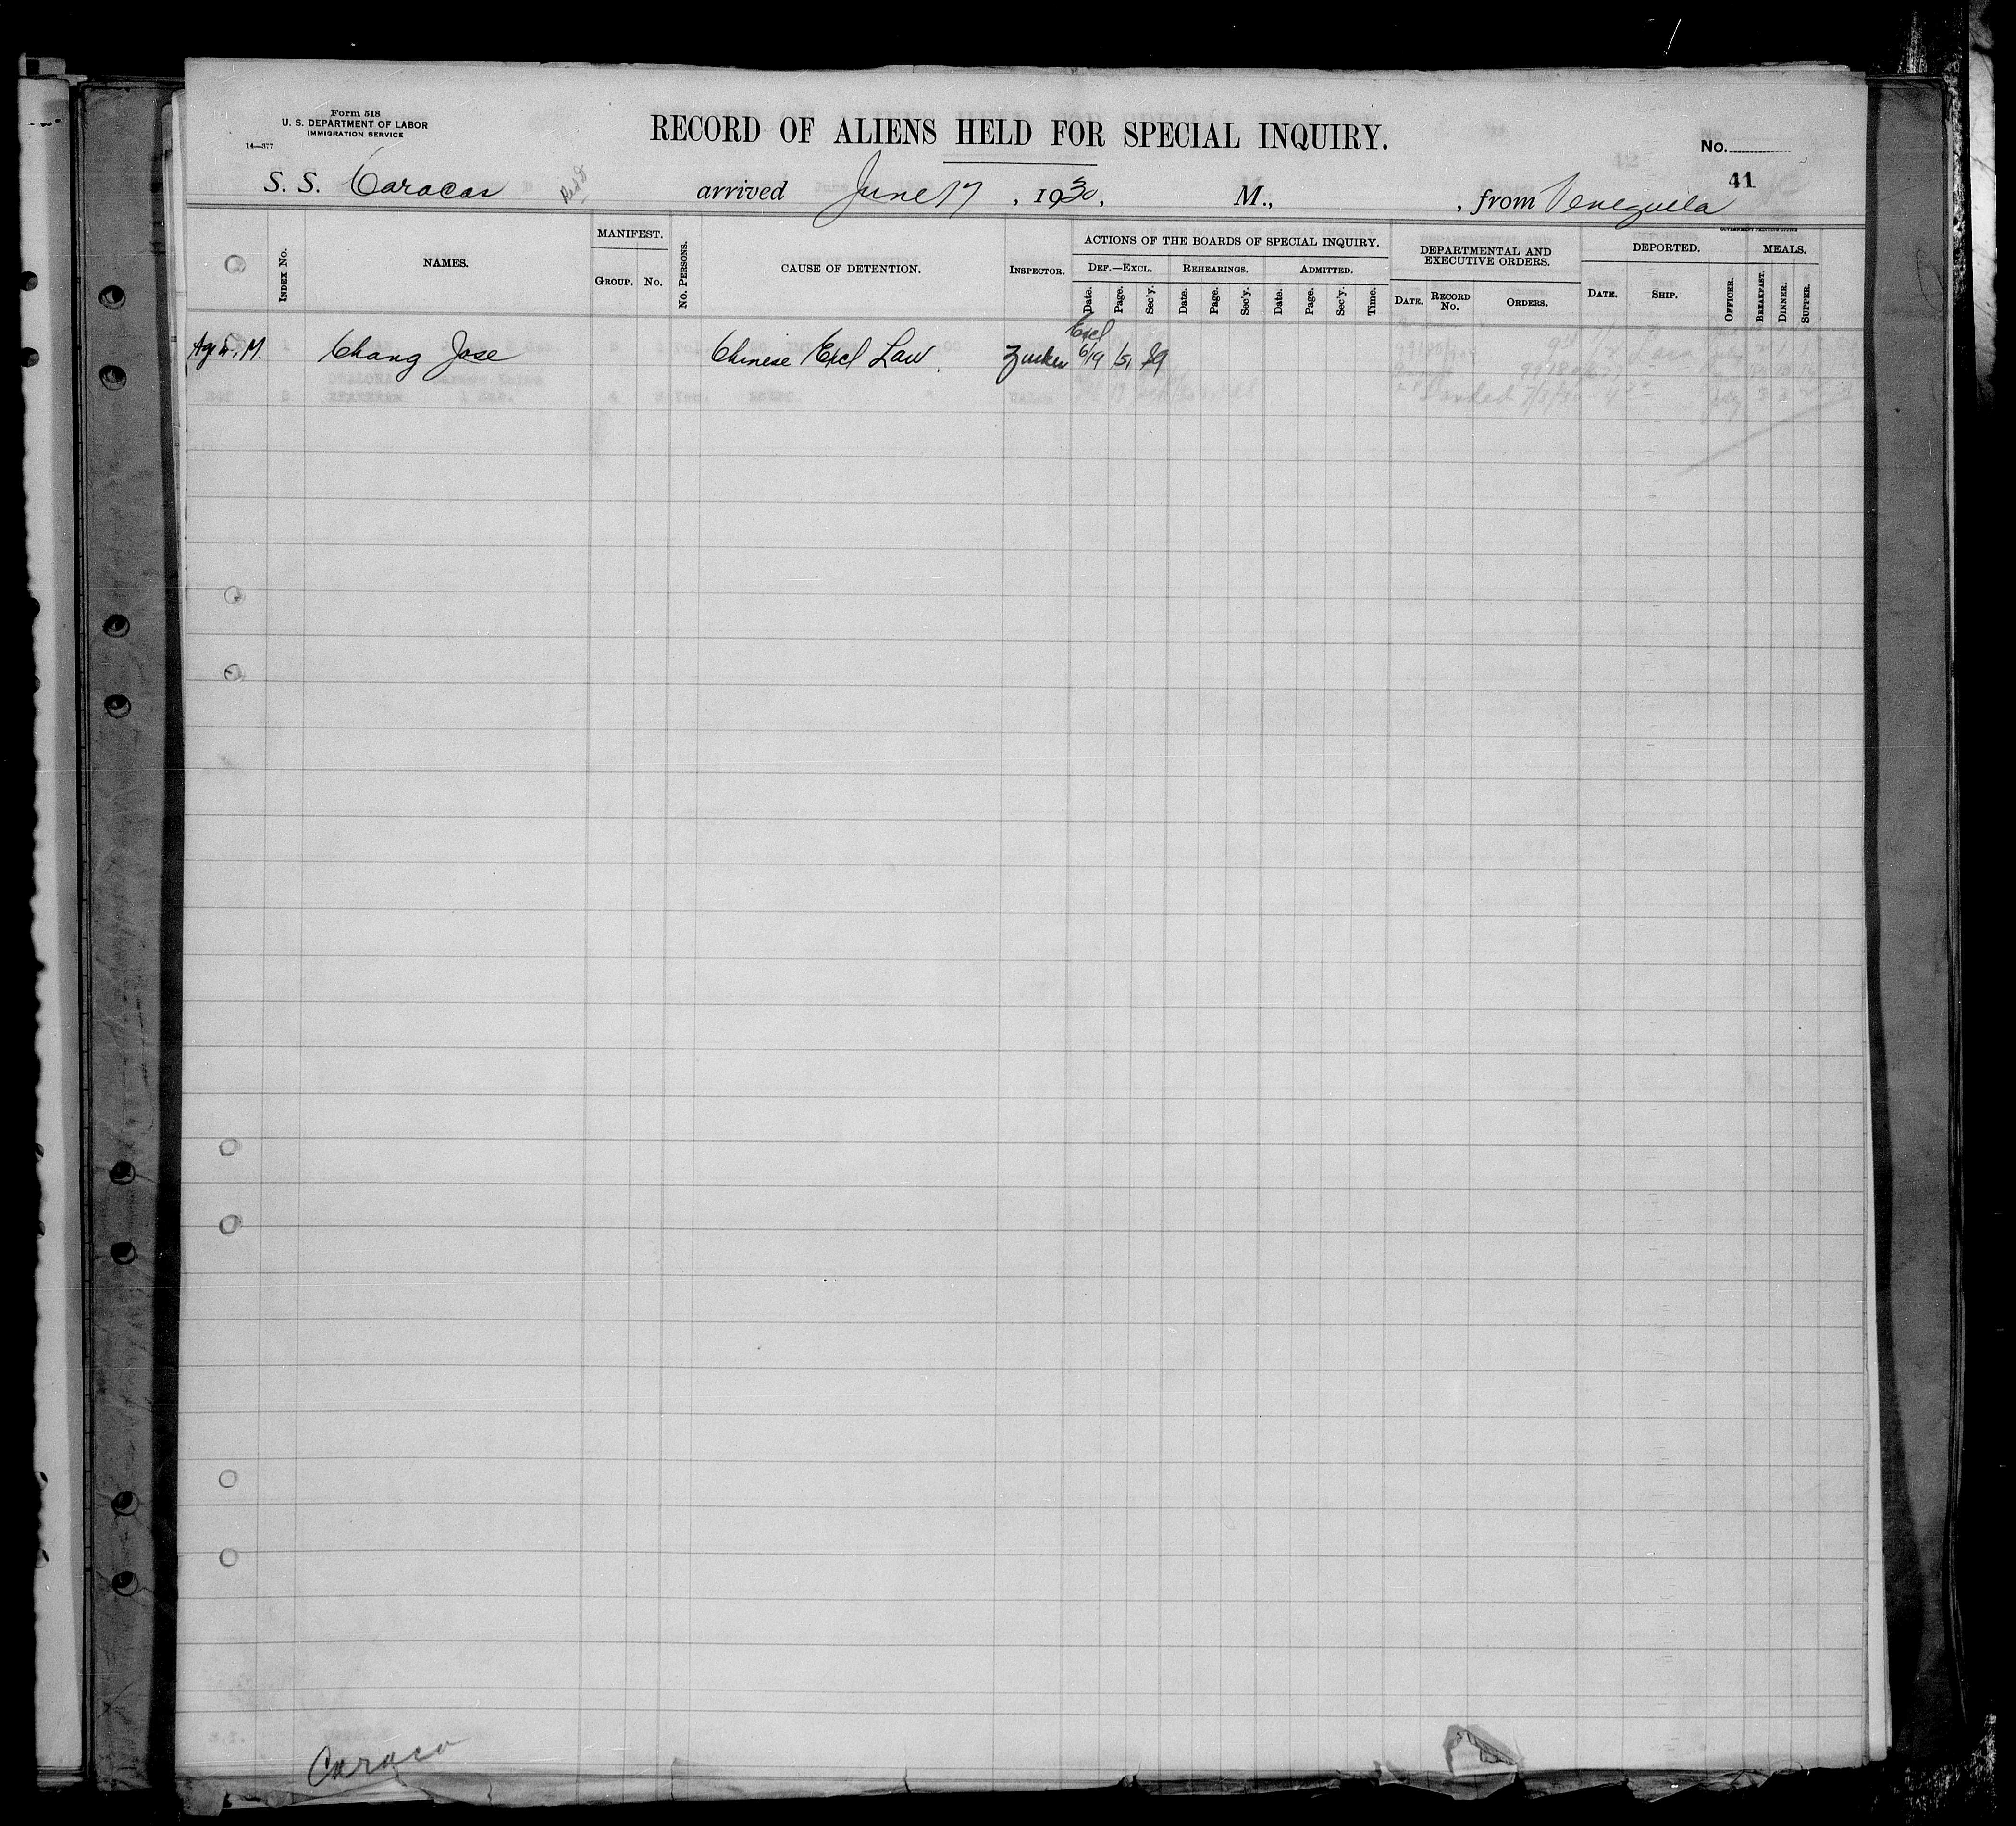 Form 518
U. S. DEPARTMENT OF LABOR
IMMIGRATION SERVICE
14—377
RECORD OF ALIENS HELD FOR SPECIAL INQUIRY.
No.
41
S. S. Caracas arrived June 17, 1930, M., , from Venezuela
GOVERNMENT PRINTING OFFICE
INDEX No.
NAMES.
MANIFEST.
GROUP. No.
No. PERSONS.
CAUSE OF DETENTION.
INSPECTOR.
ACTIONS OF THE BOARDS OF SPECIAL INQUIRY.
DEF.—EXCL. REHEARINGS. ADMITTED.
Date. Page. Sec'y. Date. Page. Sec'y. Date. Page. Sec'y. Time.
DEPARTMENTAL AND
EXECUTIVE ORDERS.
DATE. RECORD No. ORDERS.
DEPORTED.
DATE. SHIP.
OFFICER.
MEALS.
BREAKFAST. DINNER. SUPPER.
Excl
M. Chang Jose Chinese Excl Law Zucker 6/19
Landed 7/3/30
Caraca